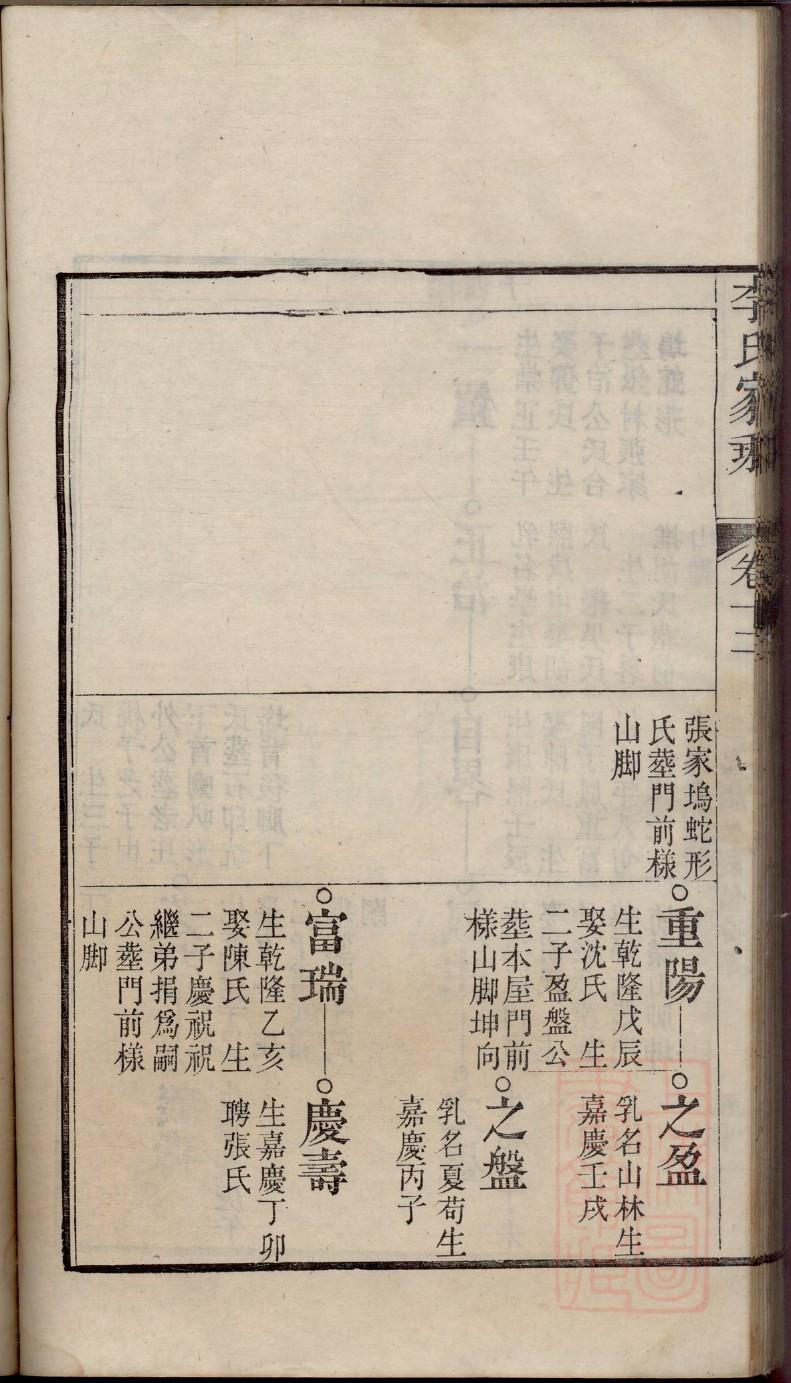 李氏家
卷十三
張家塢蛇形
氏塟門前様
山脚
重陽
生乾隆戊辰
娶沈氏 生
二子盈盤公
塟本屋門前
様山脚坤向
之盈
乳名山林生
嘉慶壬戌
之盤
乳名夏苟生
嘉慶丙子
富瑞
生乾隆乙亥
娶陳氏 生
二子慶祝祝
繼弟捐爲嗣
公塟門前様
山脚
慶壽
生嘉慶丁卯
聘張氏